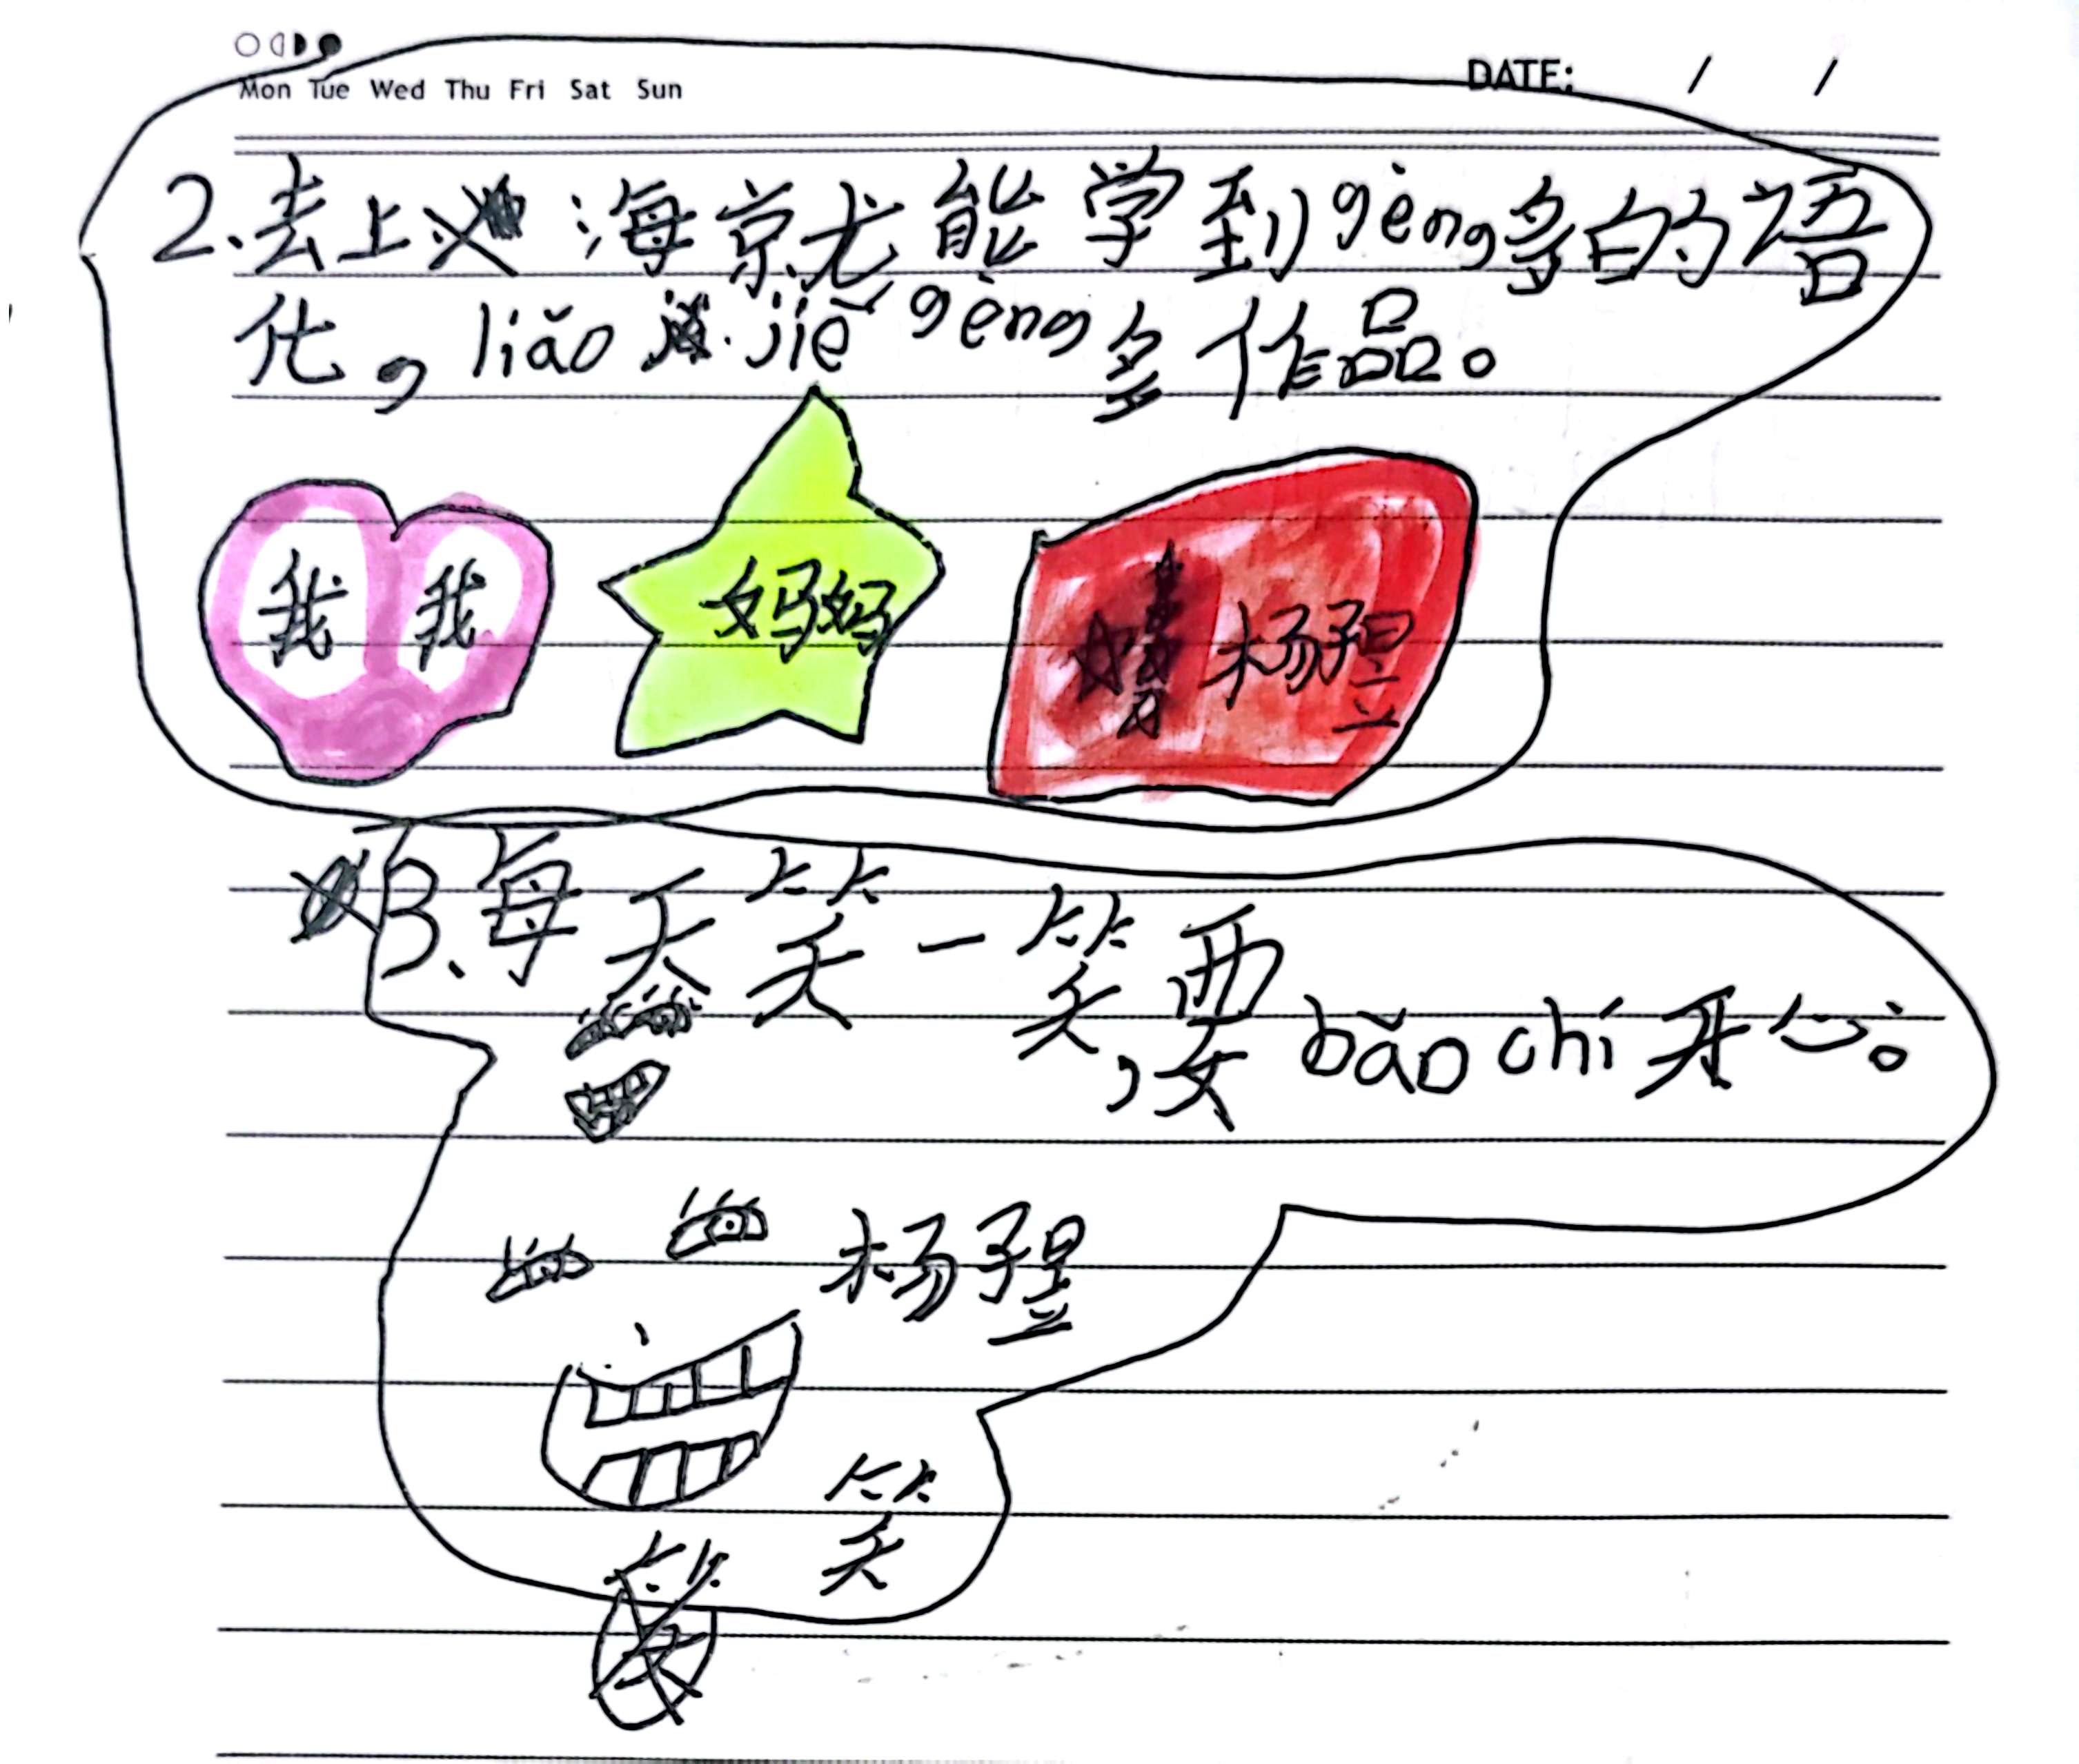 Mon Tue Wed Thu Fri Sat Sun
DATE: / /
2.去上海就能学到gèng多的语
化，liǎo jiě gèng多作品。
我 我 妈妈 杨理
3.每天笑一笑，要bǎo chí开心。
杨理
笑